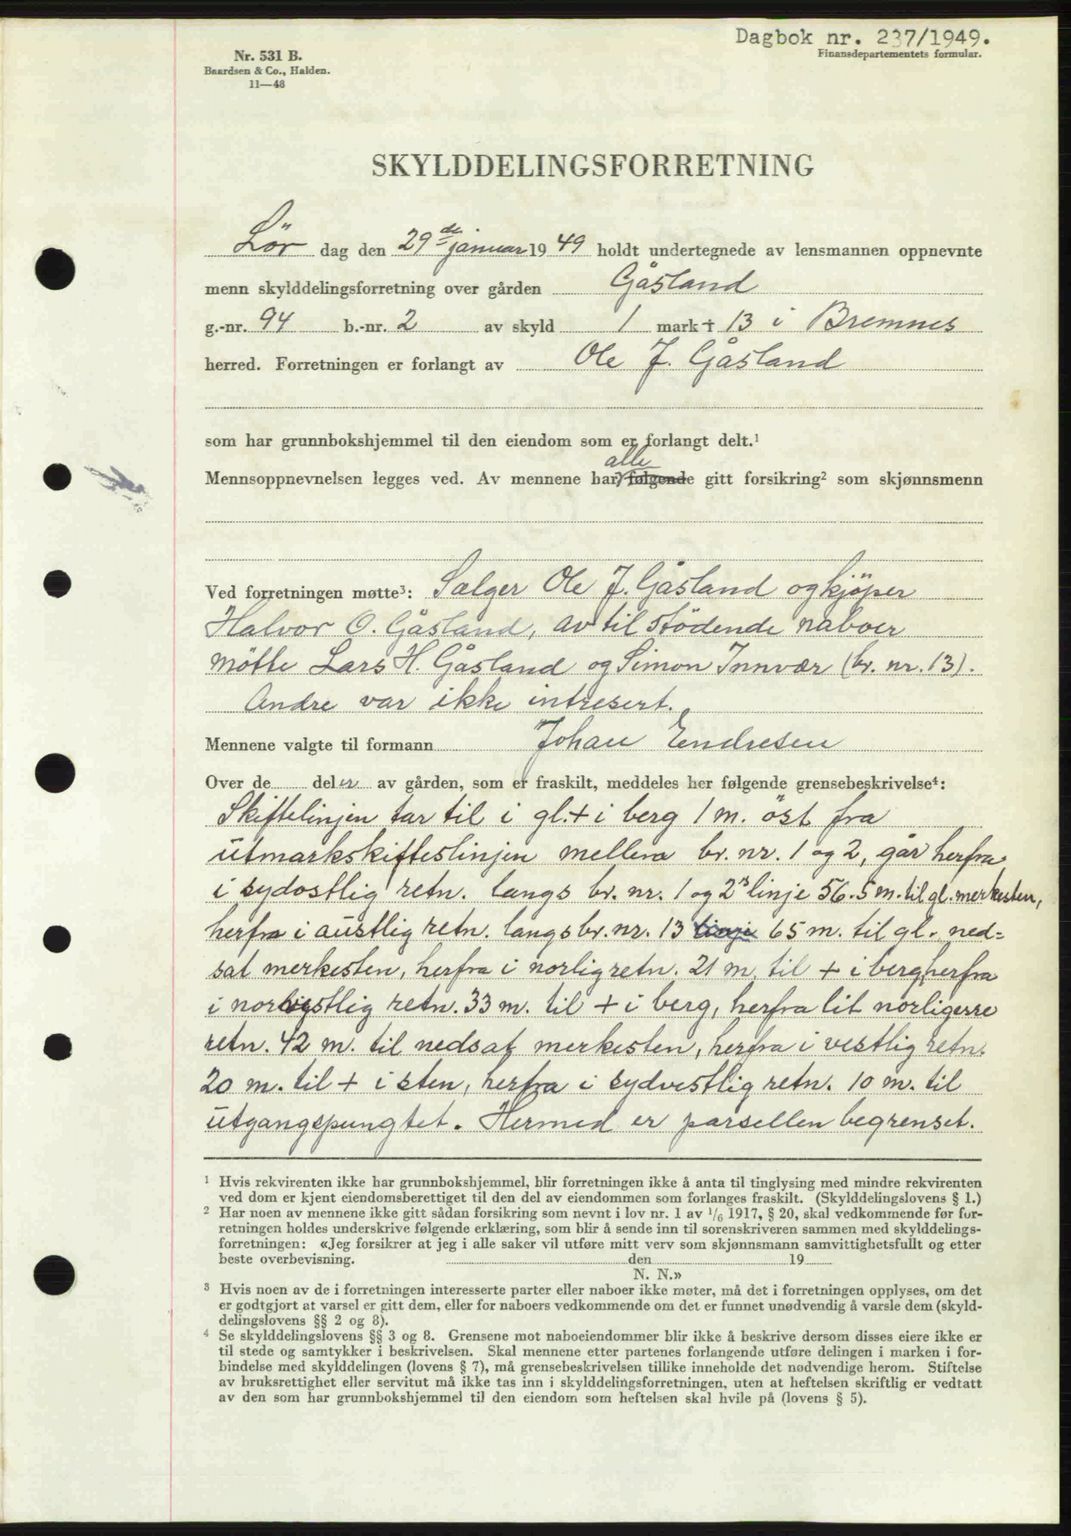 Dagbok nr. 237/1949.
Nr. 531 B.
Baardsen & Co., Halden.
11—48
Finansdepartementets formular.
SKYLDDELINGSFORRETNING
Lör dag den 29de januar 1949 holdt undertegnede av lensmannen oppnevnte
menn skylddelingsforretning over gården Gåsland
g.-nr. 94 b.-nr. 2 av skyld 1 mark + 13 i Bremnes
herred. Forretningen er forlangt av Ole J. Gåsland
som har grunnbokshjemmel til den eiendom som er forlangt delt.¹
alle
Mennsoppnevnelsen legges ved. Av mennene har følgende gitt forsikring² som skjønnsmenn
Ved forretningen møtte³: Sælger Ole J. Gåsland og kjöper
Halvor O. Gåsland, av til stödende naboer
mötte Lars H. Gåsland og Simon Innvær (br. nr. 13).
Andre var ikke intresert.
Mennene valgte til formann Johan Endresen
Over de deler av gården, som er fraskilt, meddeles her følgende grensebeskrivelse⁴:
Skiftelinjen tar til i gl. + i berg 1 m. öst fra
utmarkskifteslinjen mellem br. nr. 1 og 2, går herfra
i sydostlig retn. langs br. nr. 1 og 2's linje 56.5 m. til gl. merkesten,
herfra i austlig retn. langs br. nr. 13 linje 65 m. til gl. ned=
sat merkesten, herfra i norlig retn. 21 m. til + i berg, herfra
i norvestlig retn. 33 m. til + i berg, herfra lit norligerre
retn. 42 m. til nedsat merkesten, herfra i vestlig retn.
20 m. til + i sten, herfra i sydvestlig retn. 10 m. til
utgangspungtet. Hermed er parsellen begrenset.
¹ Hvis rekvirenten ikke har grunnbokshjemmel, blir forretningen ikke å anta til tinglysing med mindre rekvirenten
ved dom er kjent eiendomsberettiget til den del av eiendommen som forlanges fraskilt. (Skylddelingslovens § 1.)
² Har noen av mennene ikke gitt sådan forsikring som nevnt i lov nr. 1 av 1/6 1917, § 20, skal vedkommende før for-
retningen holdes underskrive følgende erklæring, som blir å sende inn til sorenskriveren sammen med skylddelings-
forretningen: «Jeg forsikrer at jeg i alle saker vil utføre mitt verv som skjønnsmann samvittighetsfullt og etter
beste overbevisning. den 19
N. N.»
³ Hvis noen av de i forretningen interesserte parter eller naboer ikke møter, må det i forretningen opplyses, om det
er godtgjort at varsel er gitt dem, eller for naboers vedkommende om det er funnet unødvendig å varsle dem (skyld-
delingslovens §§ 2 og 8).
⁴ Se skylddelingslovens §§ 3 og 8. Grensene mot naboeiendommer blir ikke å beskrive dersom disses eiere ikke er
til stede og samtykker i beskrivelsen. Skal mennene etter partenes forlangende utføre delingen i marken i for-
bindelse med skylddelingen (lovens § 7), må grensebeskrivelsen tillike inneholde det nødvendige herom. Stiftelse
av bruksrettighet eller servitut må ikke tas inn i skylddelingsforretningen, uten at heftelsen skriftlig er vedtatt
av den som har grunnbokshjemmel til den eiendom som heftelsen skal hvile på (lovens § 5).